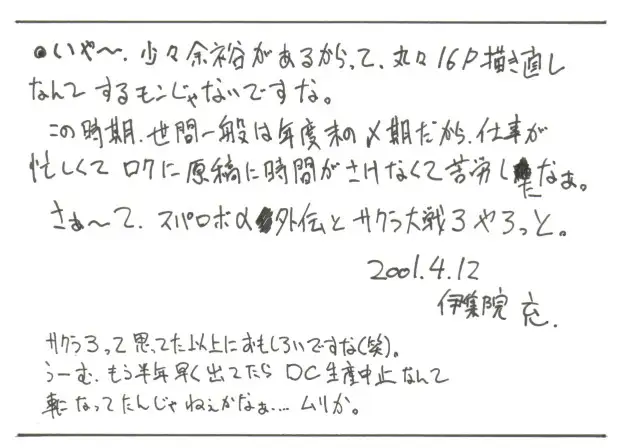 ●いや〜、少々余裕があるからって、丸々16P描き直し
なんてするモンじゃないですな。
この時期、世間一般は年度末の〆期だから、仕事が
忙しくてロクに原稿に時間がさけなくて苦労したなぁ。
さぁ〜て、スパロボα外伝とサクラ大戦3やろっと。
2001.4.12
伊集院 充.
サクラ3って思ってた以上におもしろいですな(笑)。
うーむ、もう半年早く出てたらDC生産中止なんて
事になってたんじゃねぇかなぁ…. ムリか。